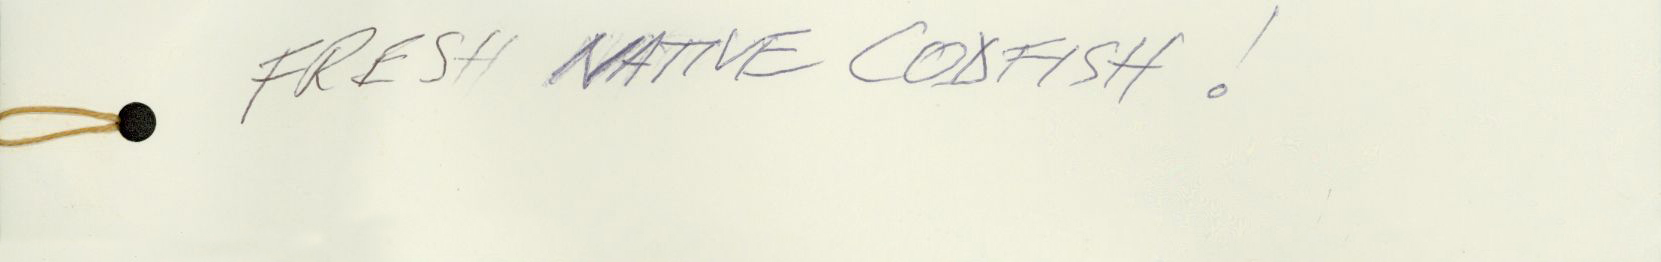 FRESH NATIVE CODFISH !